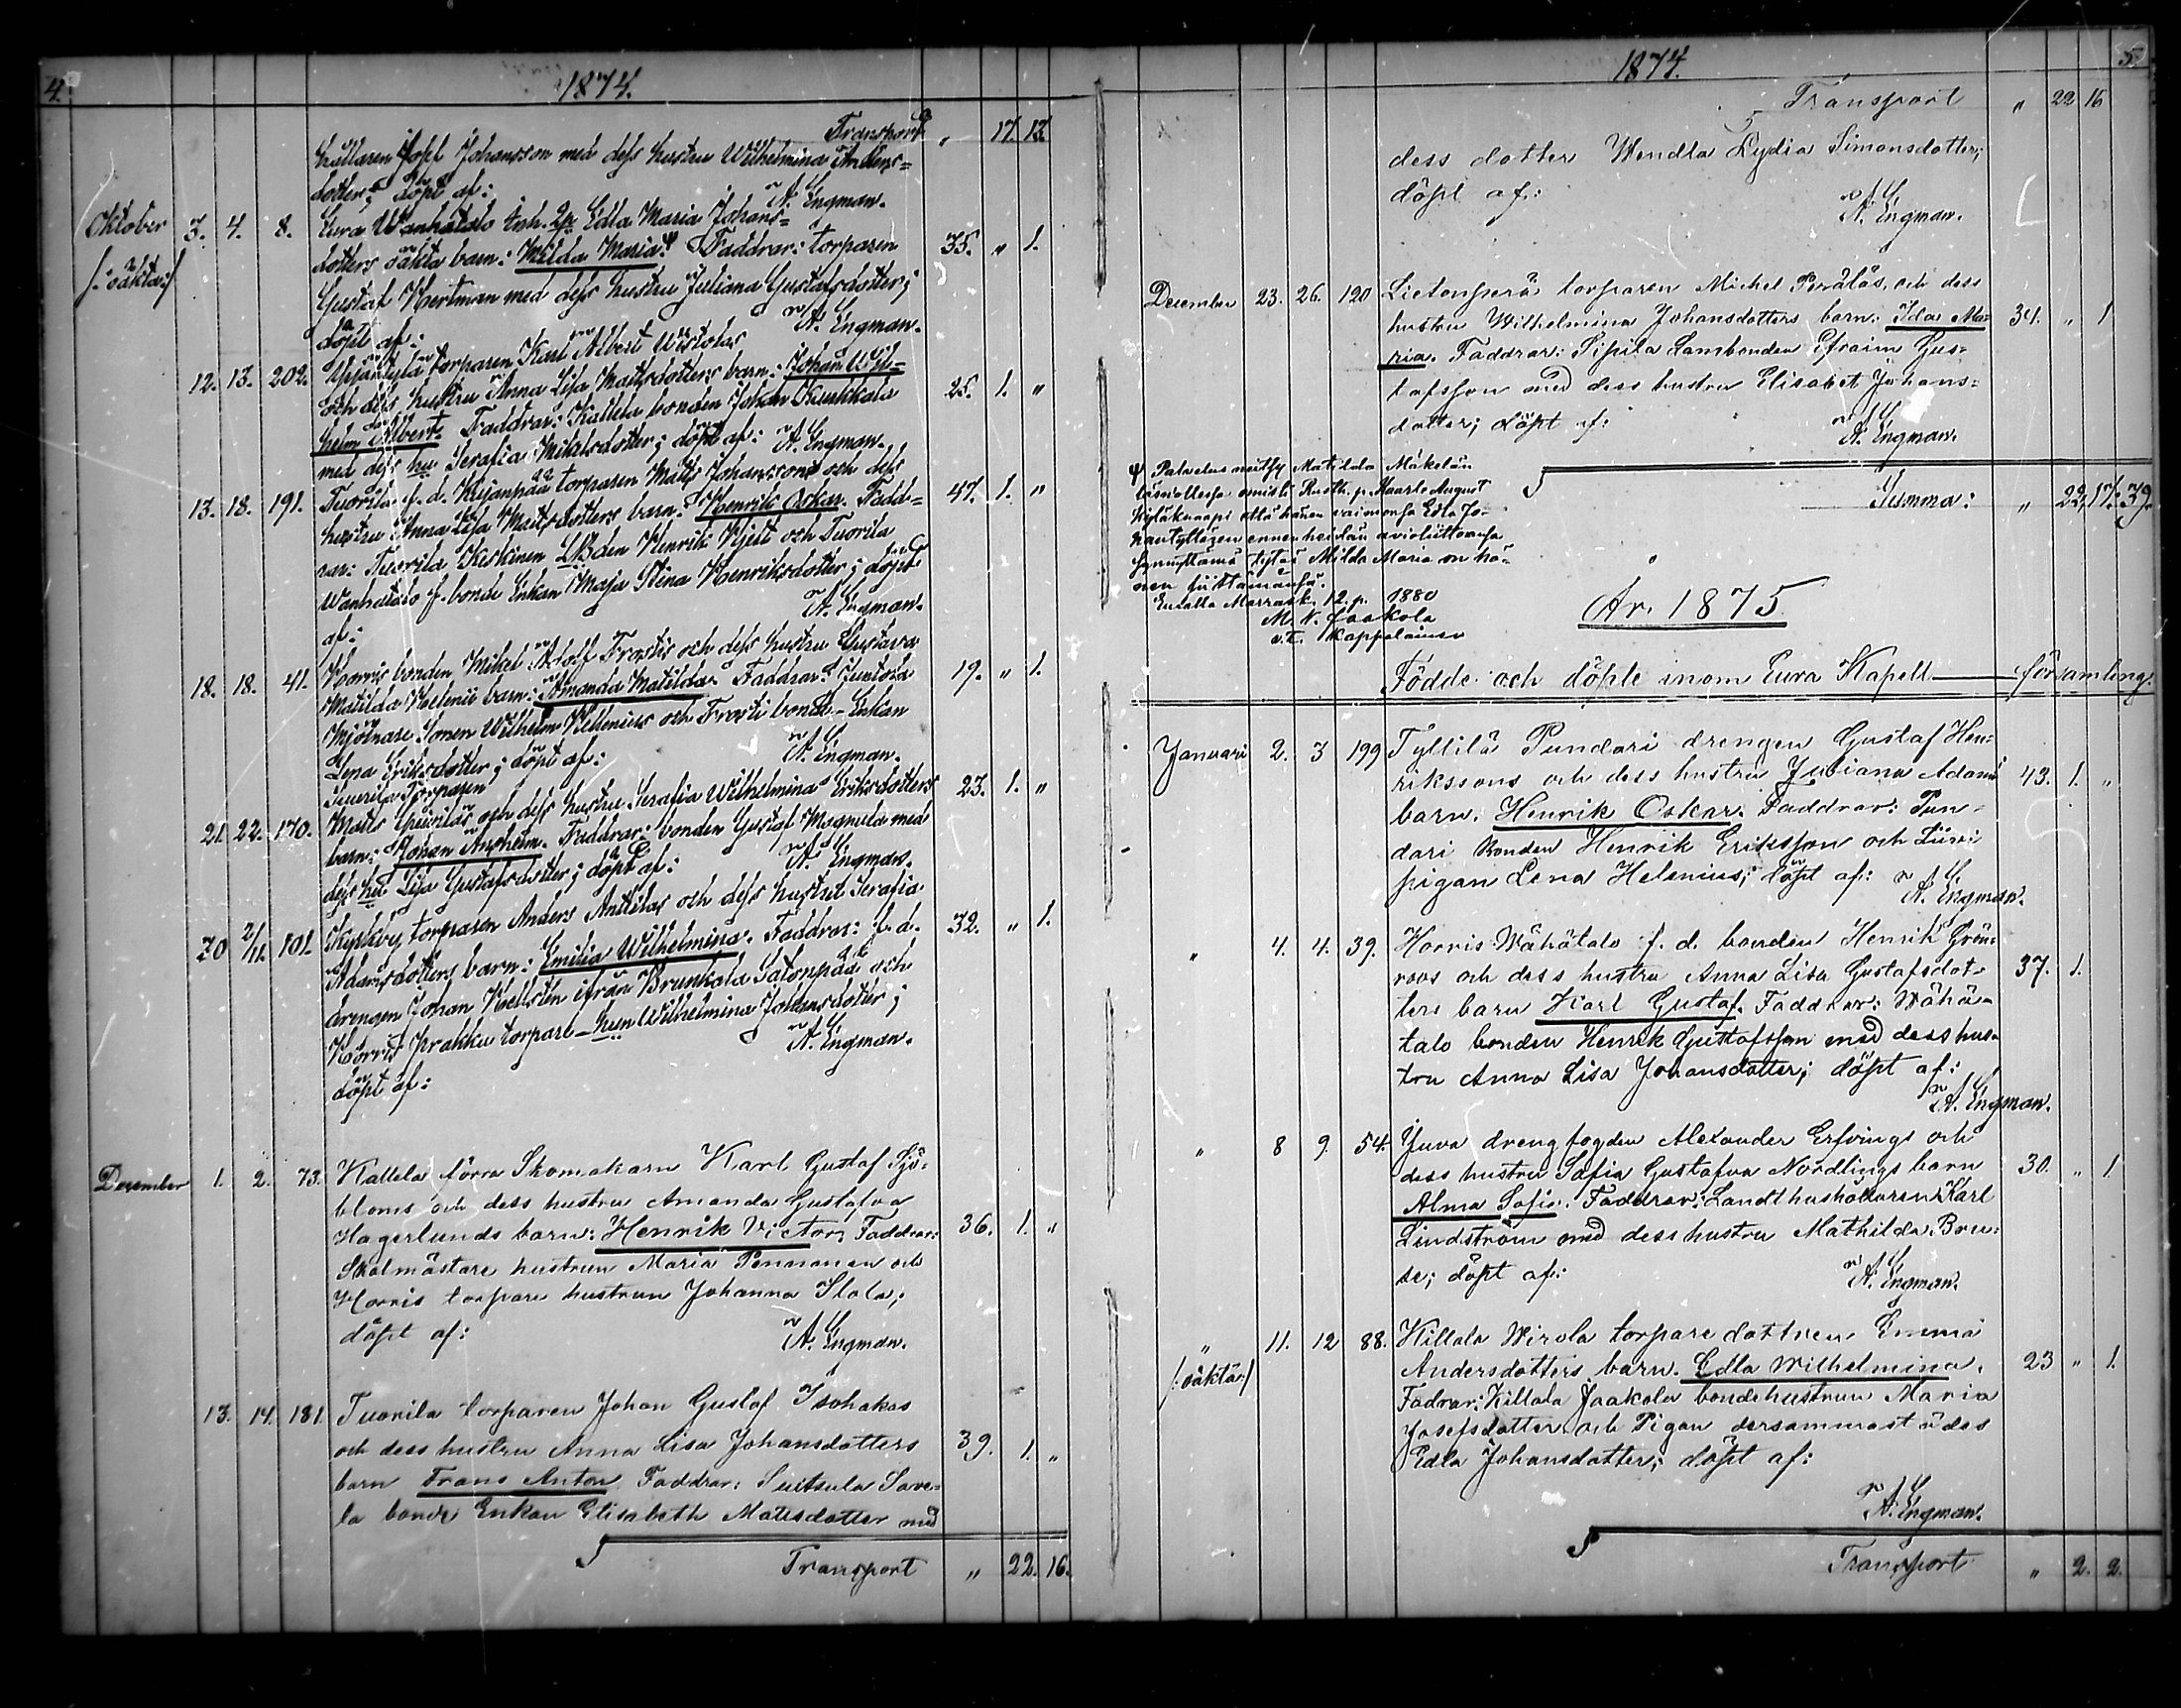 4.
1874.
Transport " 17. 12.
hållaren Josef Johansson med dess hustru Wilhelmina Anders=
dotter; döpt af: A. Engman.
Oktober 3. 4. 8. Eura Wanhatalo Inh. Edla Maria Johans=
/:oäkta:/ dotters oäkta barn: Milda Maria. ψ Faddrar: torparen 35. " 1.
Gustaf Hertman med dess hustru Juliana Gustafsdotter;
döpt af: A. Engman.
12. 13. 202. torparen Karl Albert Wistolas
och dess hustru Anna Lisa Mattsdotters barn: Johan Wil= 25. 1. "
helm Albert. Faddrar: Kallela bonden Johan
med dess hu Serafia Mikelsdotter; döpt af: A. Engman.
13. 18. 191. Tuorila f. d. torparen Matts Johanssons och dess
hustru Anna Lisa Mattsdotters barn: Henrik Oskar. Fadd= 47. 1. "
rar: Tuorila Keskinen Henrik och Tuorila
Wanhatalo f. bonde Enkan Maja Stina Henriksdotter; döpt
af: A. Engman.
18. 18. 41. bonden Mikel Adolf Frostis och dess hustru Gustava
Matilda barn: Amanda Matilda. Faddrar: 19. " 1.
Mjölnare Sonen Wilhelm Hellenius och Frosti bonde-Enkan
Lena Eriksdotter; döpt af: A. Engman.
torparen
21. 22. 170. Matts och dess hustru Serafia Wilhelmina Eriksdotters 23. 1. "
barn: Johan Anshelm. Faddrar: bonden Gustaf med
dess hu Lisa Gustafsdotter; döpt af: A. Engman.
30 2/11. 101. torparen Anders Anttilas och dess hustru Serafia
Adamsdotters barn: Emilia Wilhelmina. Faddrar: f. d. 32. " 1.
drengen Johan Hellstén ifrån Satonpää och
Horris Krakku torpare-hun Wilhelmina Johansdotter;
döpt af: A. Engman.
December 1. 2. 73. Kallela förra Skomakarn Karl Gustaf Sjö=
bloms och dess hustru Amanda Gustafva
Hagerlunds barn: Henrik Victor, Faddrar: 36. 1. "
Skolmästare hustrun Maria Pennanen och
Horris torpare hustrun Johanna Slola;
döpt af: A. Engman.
13. 14. 181. Tuorila torparen Johan Gustaf Isohakas
och dess hustru Anna Lisa Johansdotters 39. 1. "
barn Frans Anton. Faddrar: Suitsula Save=
la bonde Enkan Elisabeth Mattsdotter med
Transport " 22. 16.
1874. 5.
Transport " 22 16
dess dotter Wendla Lydia Simonsdotter;
döpt af: A. Engman.
December 23. 26. 120 Lietonperä torparen Michel Peräläs och dess
hustru Wilhelmina Johansdotters barn: Ida Ma= 34. " 1
ria. Faddrar: Sipila Lambonden Efraim Gus=
tafsson med dess hustru Elisabet Johans=
dotter; döpt af: A. Engman.
ψ Palvelusneitsy Matilda Mäkelän
läsnäollessa omisti Rusth. p. Kaarlo August
että hänen vaimonsa Edla Jo=
hantyttären ennen heidän avioliittoansa
synnyttämä tytär Milda Maria on hä=
nen siittämänsä.
Eurassa Marrask. 12. p. 1880
M. N. Jaakola
v.t. kappalainen
Summa: " 22, 17: 39.
År 1875
Födde och döpte inom Eura Kapell församling.
Januari 2. 3 199 Tyllilä Pundari drengen Gustaf Hen=
rikssons och dess hustru Juliana Adams 43. 1. "
barn. Henrik Oskar. Faddrar: Pun=
dari Bonden Henrik Eriksson och
pigan Lena Helenius; döpt af: A. Engman.
" 4. 4. 39. Horris Wähätalo f. d. bonden Henrik Grön=
roos och dess hustru Anna Lisa Gustafsdot= 37. 1.
ters barn Karl Gustaf. Faddrar: Wähä=
talo bonden Henrik Gustafsson med dess hus=
tru Anna Lisa Johansdotter; döpt af:
A. Engman.
" 8 9. 54. Juva drengfogden Alexander Erfvings och
dess hustru Sofia Gustafva Nordlings barn 30. " 1
Alma Sofia. Faddrar: Landthushållaren Karl
Lindström med dess hustru Mathilda Bru=
se; döpt af: A. Engman.
" 11. 12 88. Killala Wirola torpare dottren Emma
/:oäkta:/ Andersdotters barn. Edla Wilhelmina. 23 " 1.
Fadrar: Killala Jaakola bondehustrun Maria
Josefsdotter och Pigan dersammastädes
Edla Johansdotter; döpt af:
A. Engman.
Transport " 2. 2.